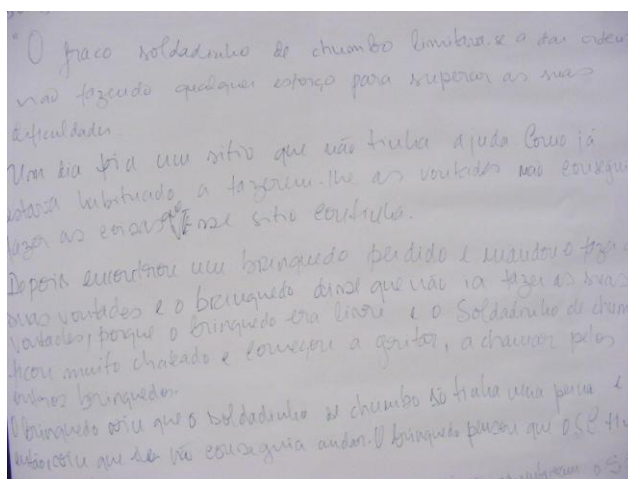 "O fraco soldadinho de chumbo limitava-se a dar
não fazendo qualquer esforço para superar as suas
dificuldades.
Um dia foi a um sitio que não tinha ajuda. Como já
estava habituado a fazerem-lhe as vontades não
fazer as coisas que esse sitio continha.
Depois encontrou um brinquedo perdido e mandou-o fazer
suas vontades e o brinquedo disse que não ia fazer as suas
vontades, porque o brinquedo era livre e o Soldadinho de
ficou muito chateado e começou a gritar, a chamar pelos
outros brinquedos.
O brinquedo viu que o soldadinho de chumbo só tinha uma perna e
então viu que não conseguia andar. O brinquedo pensou que o